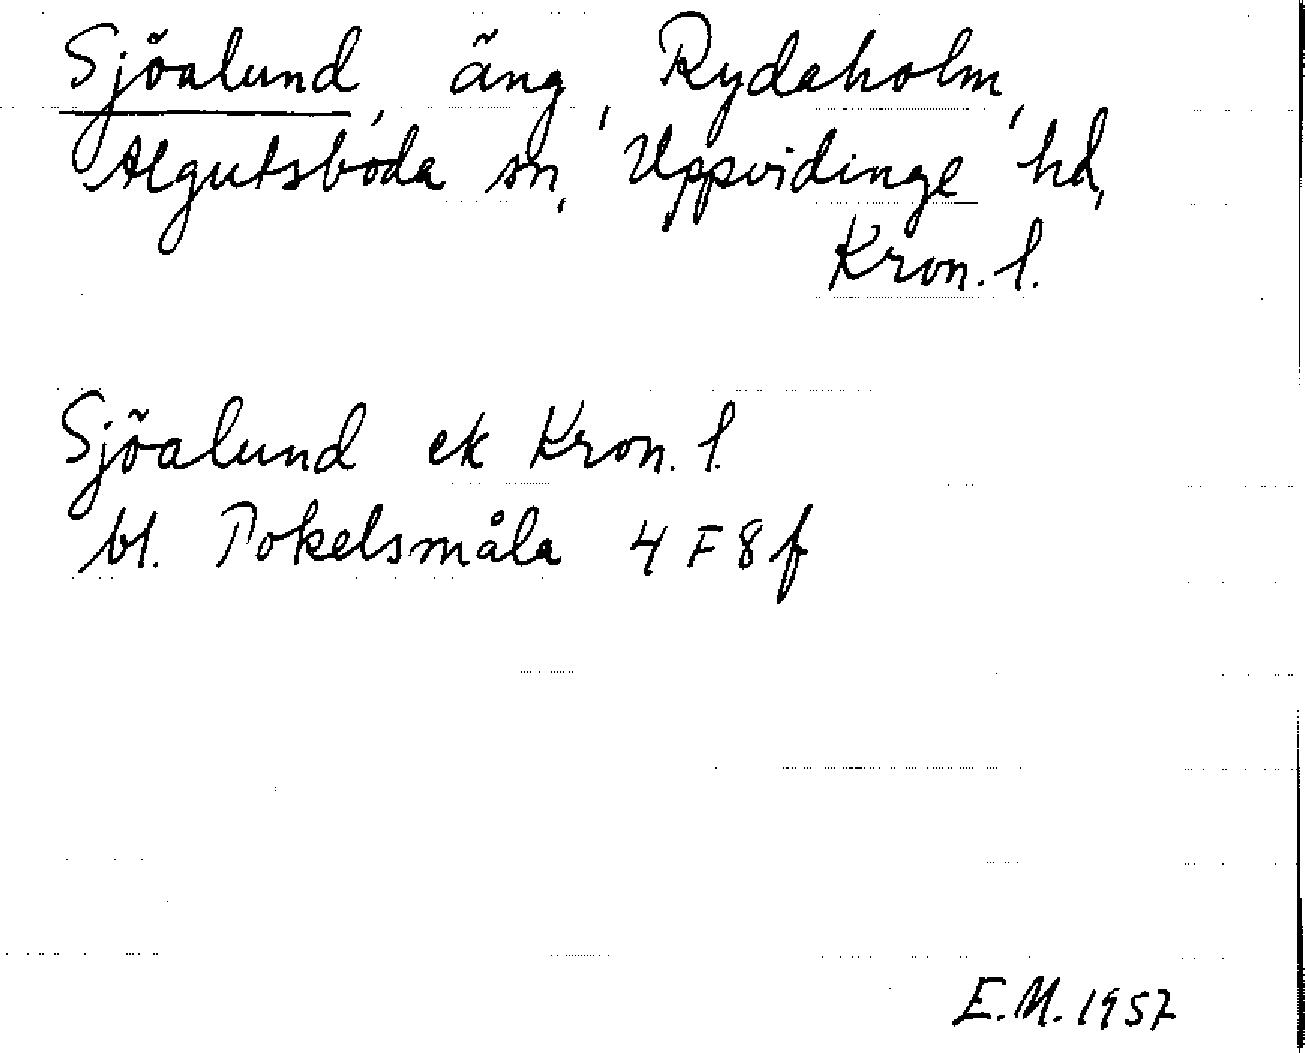 Sjöalund, äng, Rydaholm,
Algutsboda sn, Uppvidinge hd,
Kron. l.
Sjöalund ek Kron. l.
bl. Pokelsmåla 4F8f
E.M. 1957